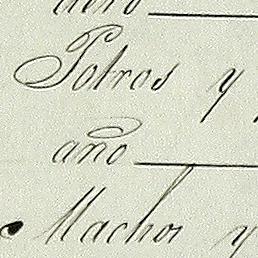 Potros y
año
Machos y